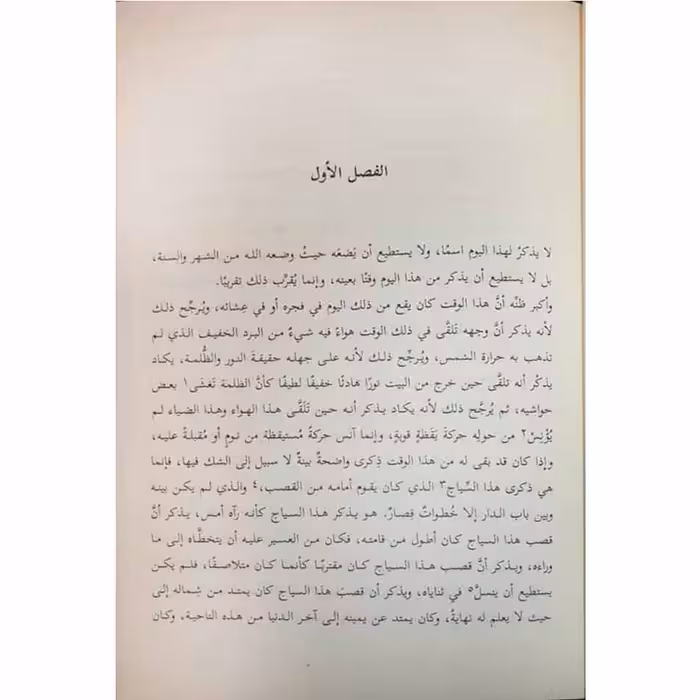 الفصل الأول
لا يذكرُ لهذا اليوم اسمًا، ولا يستطيع أن يَضعَه حيثُ وضعه الله من الشهر والسنة،
بل لا يستطيع أن يذكر من هذا اليوم وقتًا بعينه، وإنما يُقرِّب ذلك تقريبًا.
وأكبر ظنِّه أنَّ هذا الوقت كان يقع من ذلك اليوم في فجره أو في عِشائه، ويُرجِّح ذلك
لأنه يذكر أنَّ وجهه تَلقَّى في ذلك الوقت هواءً فيه شيءٌ من البرد الخفيف الذي لم
تذهب به حرارة الشمس، ويُرجِّح ذلك لأنه على جهله حقيقة النور والظُّلمة، يكاد
يذكُر أنه تلقَّى حين خرج من البيت نورًا هادئًا خفيفًا لطيفًا كأنَّ الظلمة تَغشَى١ بعض
حواشيه، ثم يُرجَّح ذلك لأنه يكاد يذكر أنه حين تَلَقَّى هذا الهواء وهذا الضياء لم
يُؤْنِسْ٢ من حولِه حركةَ يَقَظةٍ قوية، وإنما آنس حركةً مُستيقظة من نومٍ أو مُقبلةً عليه،
وإذا كان قد بقى له من هذا الوقت ذِكرى واضحةٌ بينةٌ لا سبيل إلى الشك فيها، فإنما
هي ذكرى هذا السِّياج٣ الذي كان يقوم أمامه من القصب،٤ والذي لم يكن بينه
وبين باب الدار إلا خُطواتٌ قِصارٌ. هو يذكر هذا السياج كأنه رآه أمس، يذكر أنَّ
قصب هذا السياج كان أطول من قامته، فكان من العسير عليه أن يتخطَّاه إلى ما
وراءه، ويـذكر أنَّ قصب هذا السياج كان مقتربًا كأنما كان متلاصقًا، فلم يكن
يستطيع أن ينسلَّ٥ في ثناياه، ويذكر أن قصبَ هذا السياج كان يمتد من شِماله إلى
حيث لا يعلم له نهايةً، وكان يمتد عن يمينه إلى آخر الدنيا من هذه الناحية، وكان